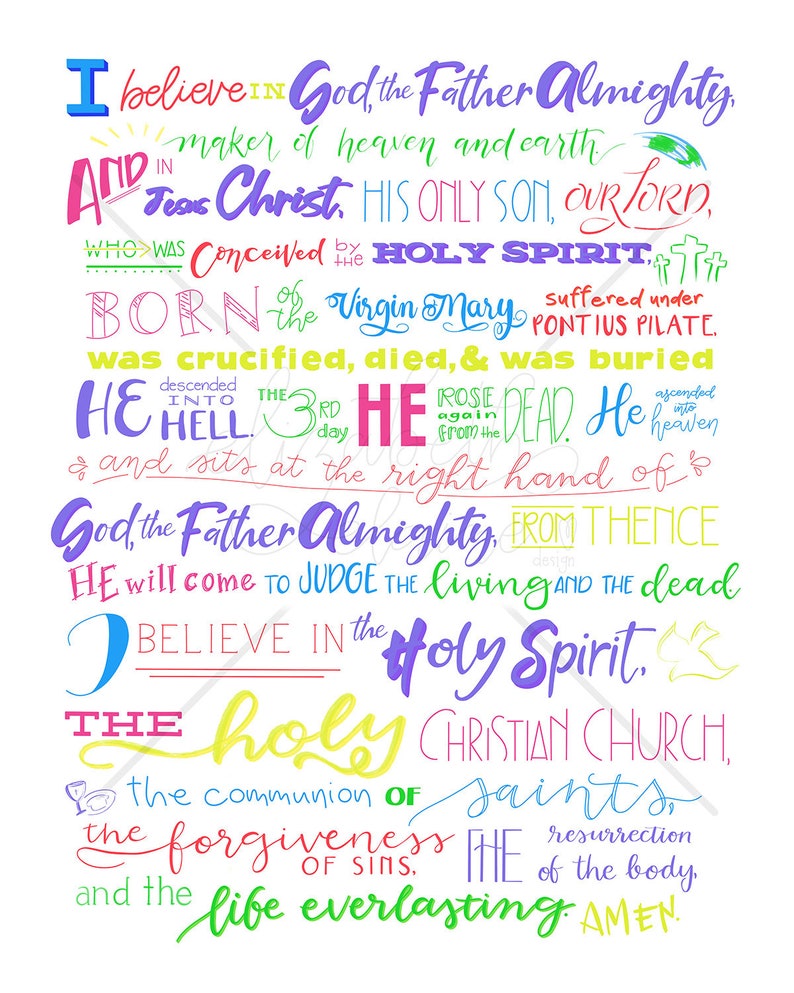 I believe IN God, the Father Almighty,
maker of heaven and earth.
AND IN Jesus Christ, HIS ONLY SON, OUR LORD,
WHO WAS Conceived by the HOLY SPIRIT,
BORN of the Virgin Mary suffered under PONTIUS PILATE,
was crucified, died, & was buried
HE descended INTO HELL. THE 3RD day HE ROSE again from the DEAD. He ascended into heaven
and sits at the right hand of
God, the Father Almighty, FROM THENCE
HE will come TO JUDGE THE living AND THE dead
I BELIEVE IN the Holy Spirit,
THE holy CHRISTIAN CHURCH,
the communion OF saints,
the forgiveness OF SINS, THE resurrection of the body,
and the life everlasting. AMEN.
elizabeth
design